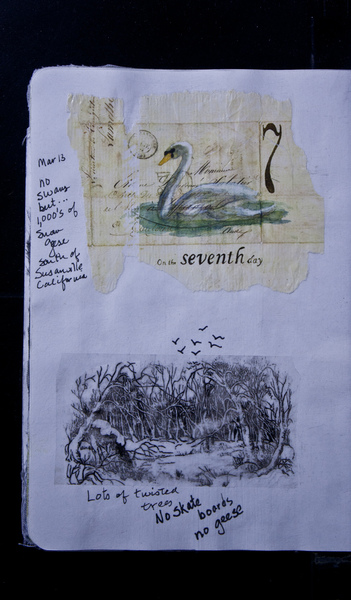 Mar 13
no
swans
but...
1,000's of
Snow
geese
south of
Susanville
California
7
On the seventh day
Lots of twisted
trees
No skate boards
no geese